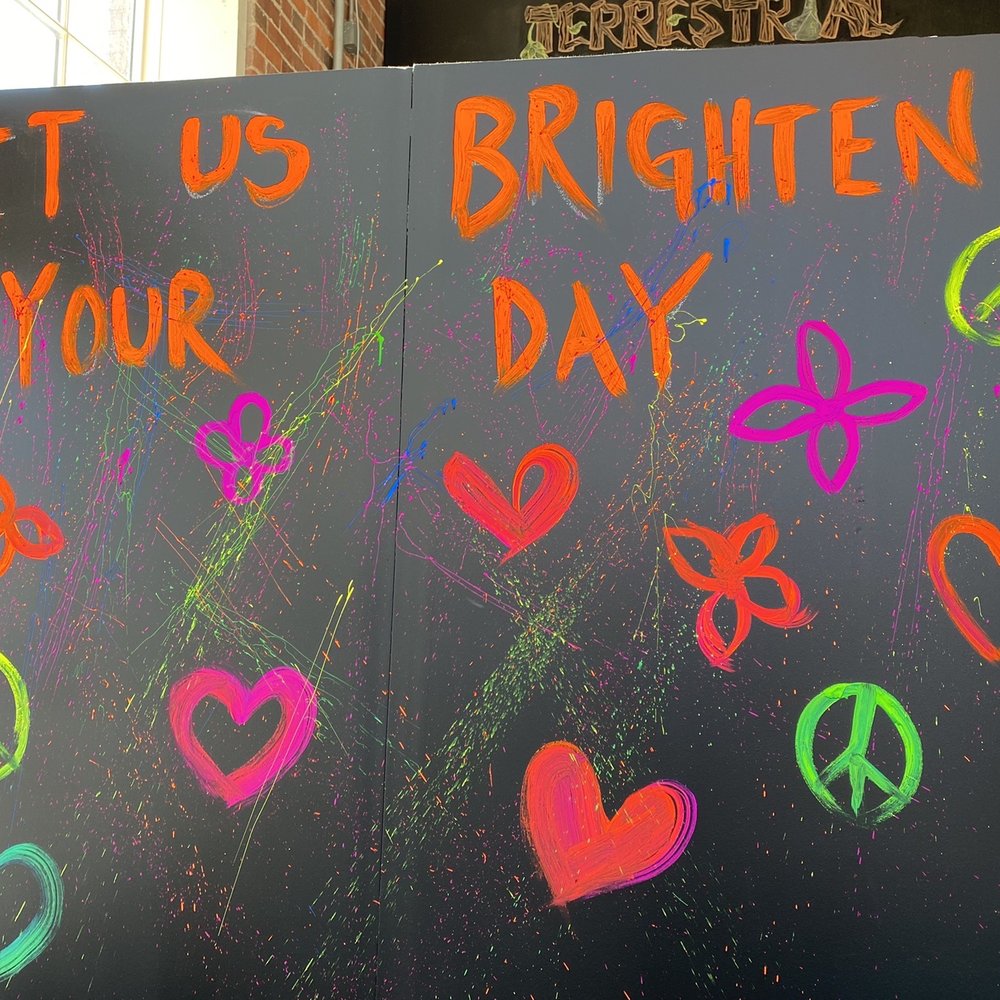 TERRESTRIAL
ET US BRIGHTEN
YOUR DAY